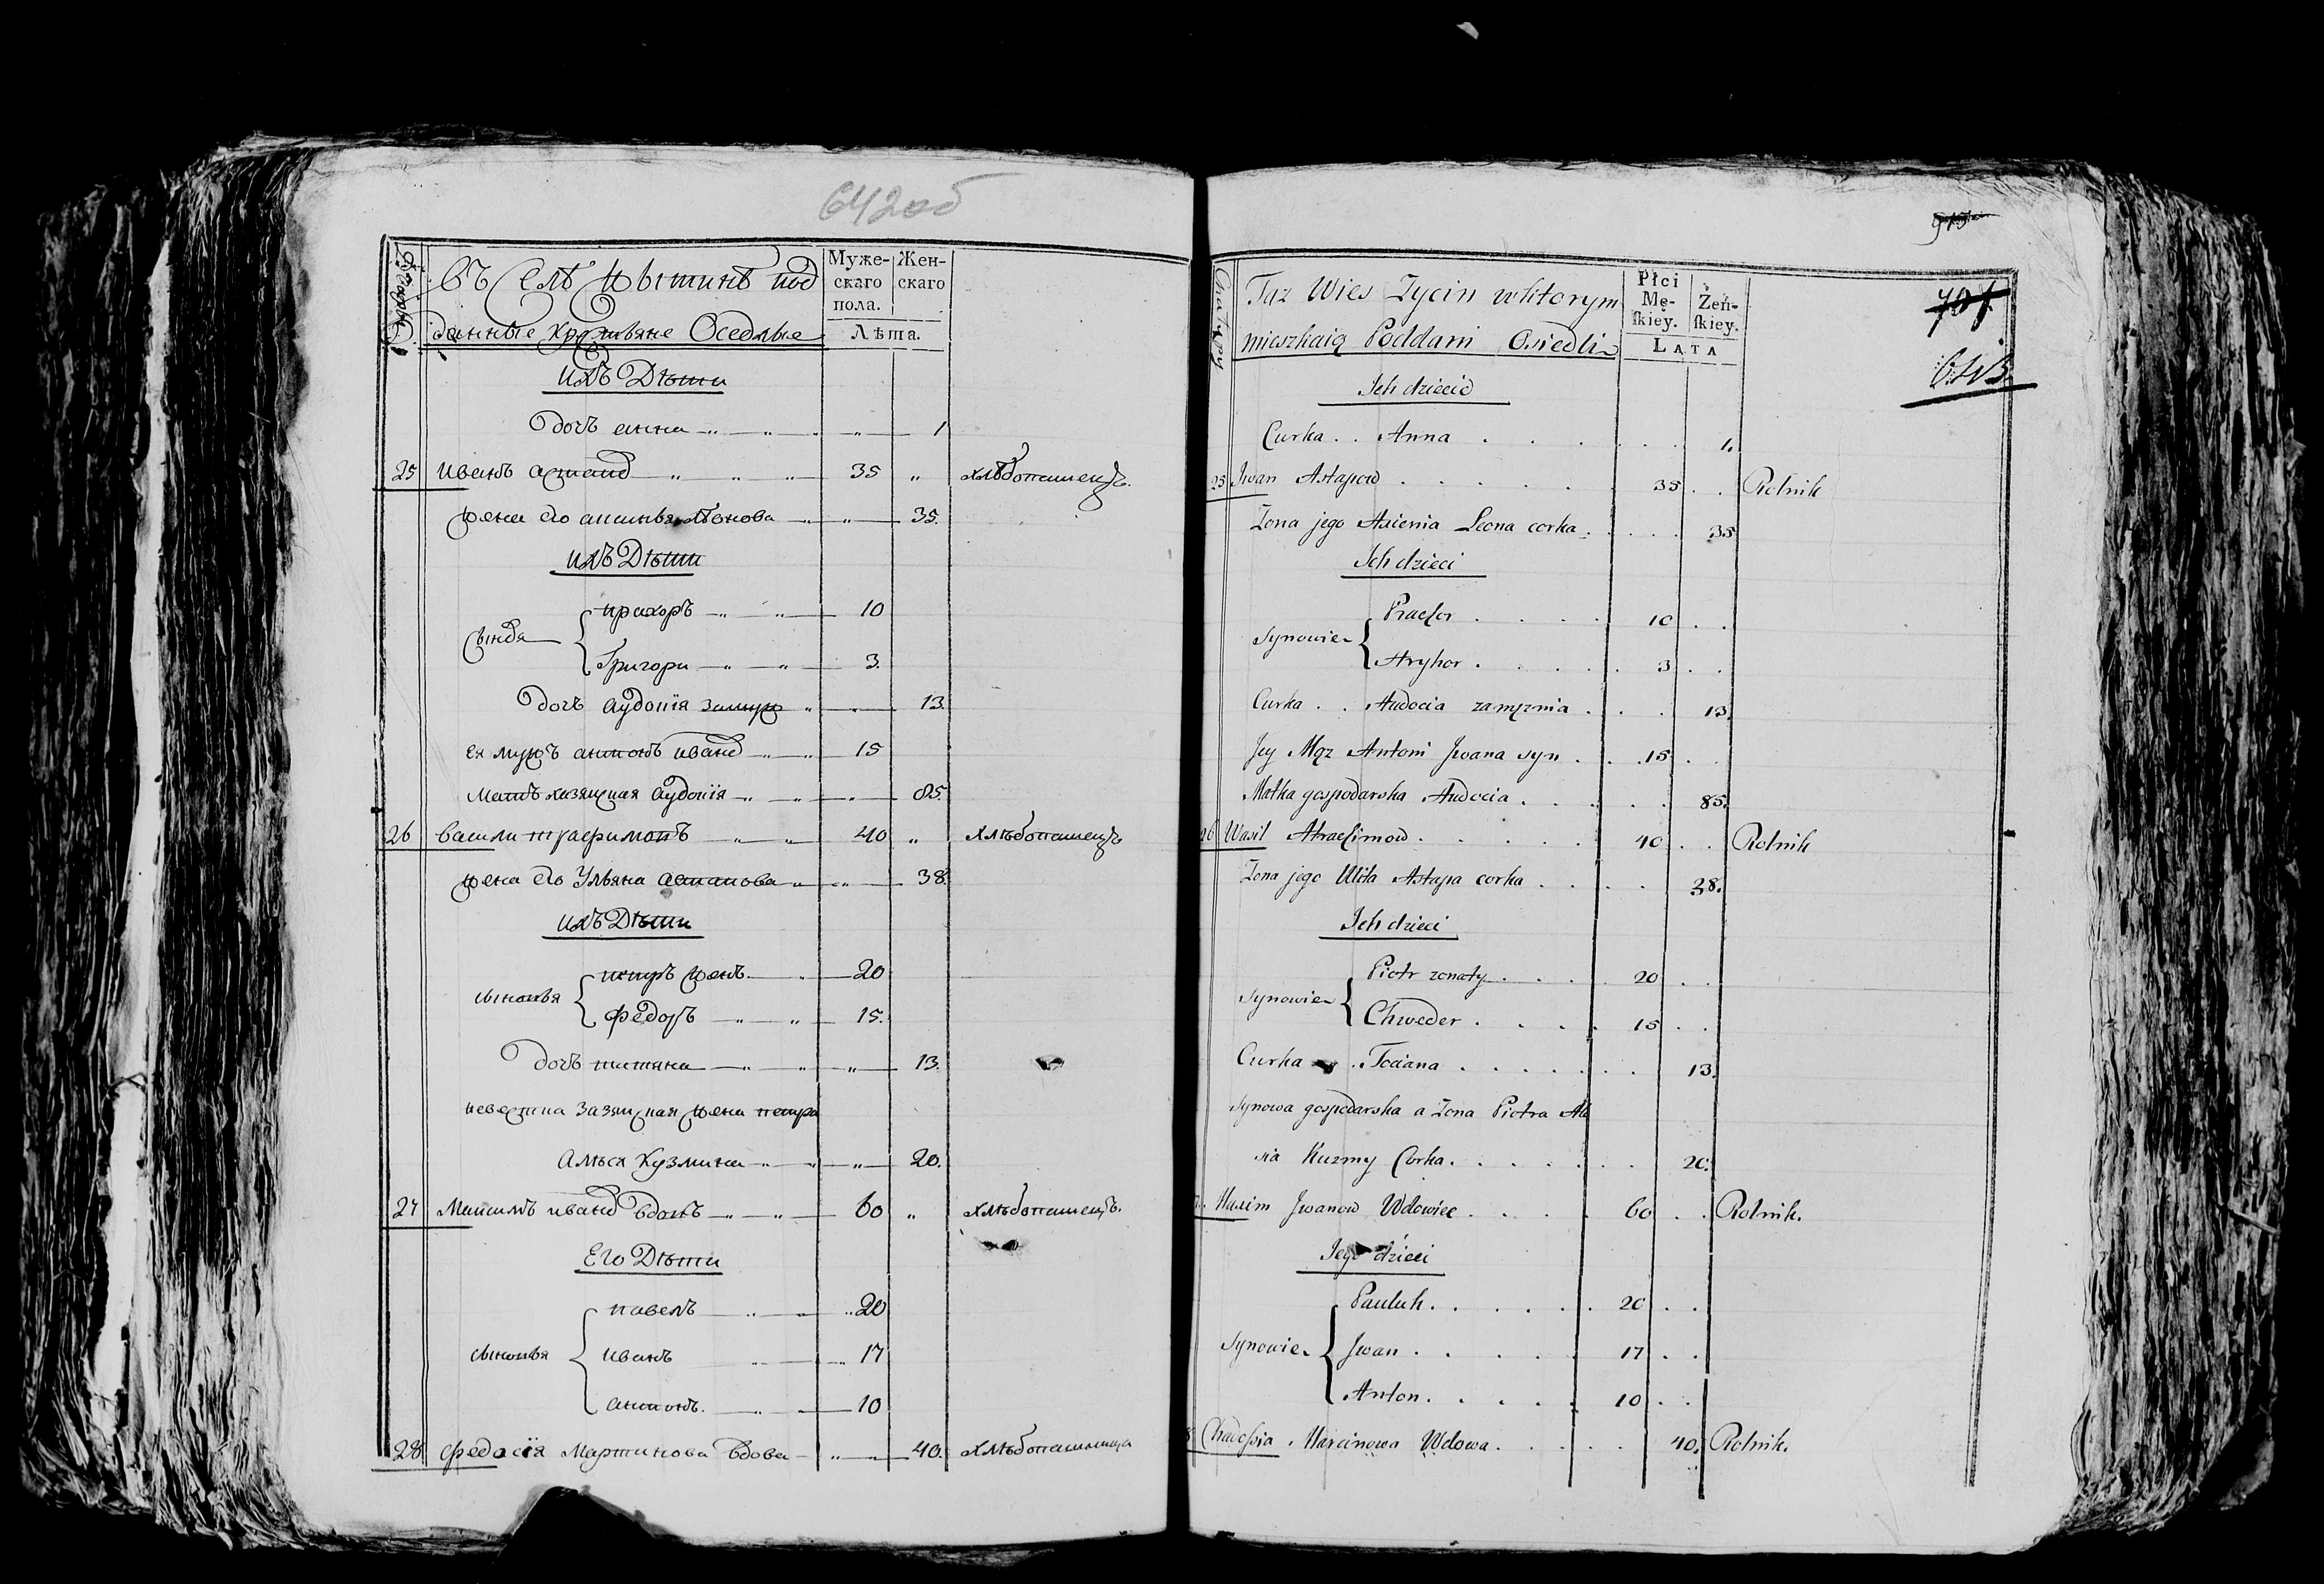 642об
Въ Селѣ Жытинѣ под
данные крестьяне Оседлые
Муже-
скаго
пола.
Жен-
скаго
Лѣта.
ихъ Дѣти
дочь анна 1
25 иванъ астапо 35 „ хлѣбопашецъ.
жена его аксинья лѣонова „ 35.
ихъ Дѣти
прахоръ 10
сыновья
Григори 3.
дочь аудокія замуж „ 13.
ея мужъ антонъ ивано 15
мать хазяиская аудокія „ 85.
26 васили трафимовъ 40 „ хлѣбопашецъ
жена его Ульяна астапова „ 38.
ихъ Дѣти
петръ женъ 20
сыновья
Федоръ 15.
дочь татяна „ 13.
невестка зазяиская жена петра
Алѣся Кузмина „ 20.
27 Максимъ ивано вдовъ 60 „ хлѣбопашецъ.
Его Дѣти
павелъ 20
сыновья
иванъ 17
антонъ. 10
28 федосія Мартинова вдова 40. хлѣбопашыца
Chałupy
Taz Wies Zycin wktorym
mieszkaią Poddani Osiedli
Płci
Mę-
skiey.
Żeń-
skiey.
LATA
707
643
Ich dzieci
Curka . . Anna 1.
25 Jwan Astapow 35 . . Rolnik
Zona jego Axienia Leona corka 35
Ich dzieci
Prachor 10 . .
Synowie
Hryhor 3 . .
Curka . . Audocia zamęznia 13.
Jey Mąz Antoni Jwana syn 15 .
Matka gospodarska Audocia 85.
26 Wasil Atrachimow 40 . . Rolnik
Zona jego Ulita Astapa corka 38.
Ich dzieci
Piotr zonaty 20 . .
Synowie
Chweder 15 . .
Curka . Taciana 13.
Synowa gospodarska a Zona Piotra Ale
xia Kuzmy Corka 20.
Maxim Jwanow Wdowiec 60 . . Rolnik.
Jego dzieci
Pauluk 20 . .
Synowie
Jwan 17 . .
Anton 10 . .
8 Chadossia Marcinowa Wdowa 40. Rolnik.